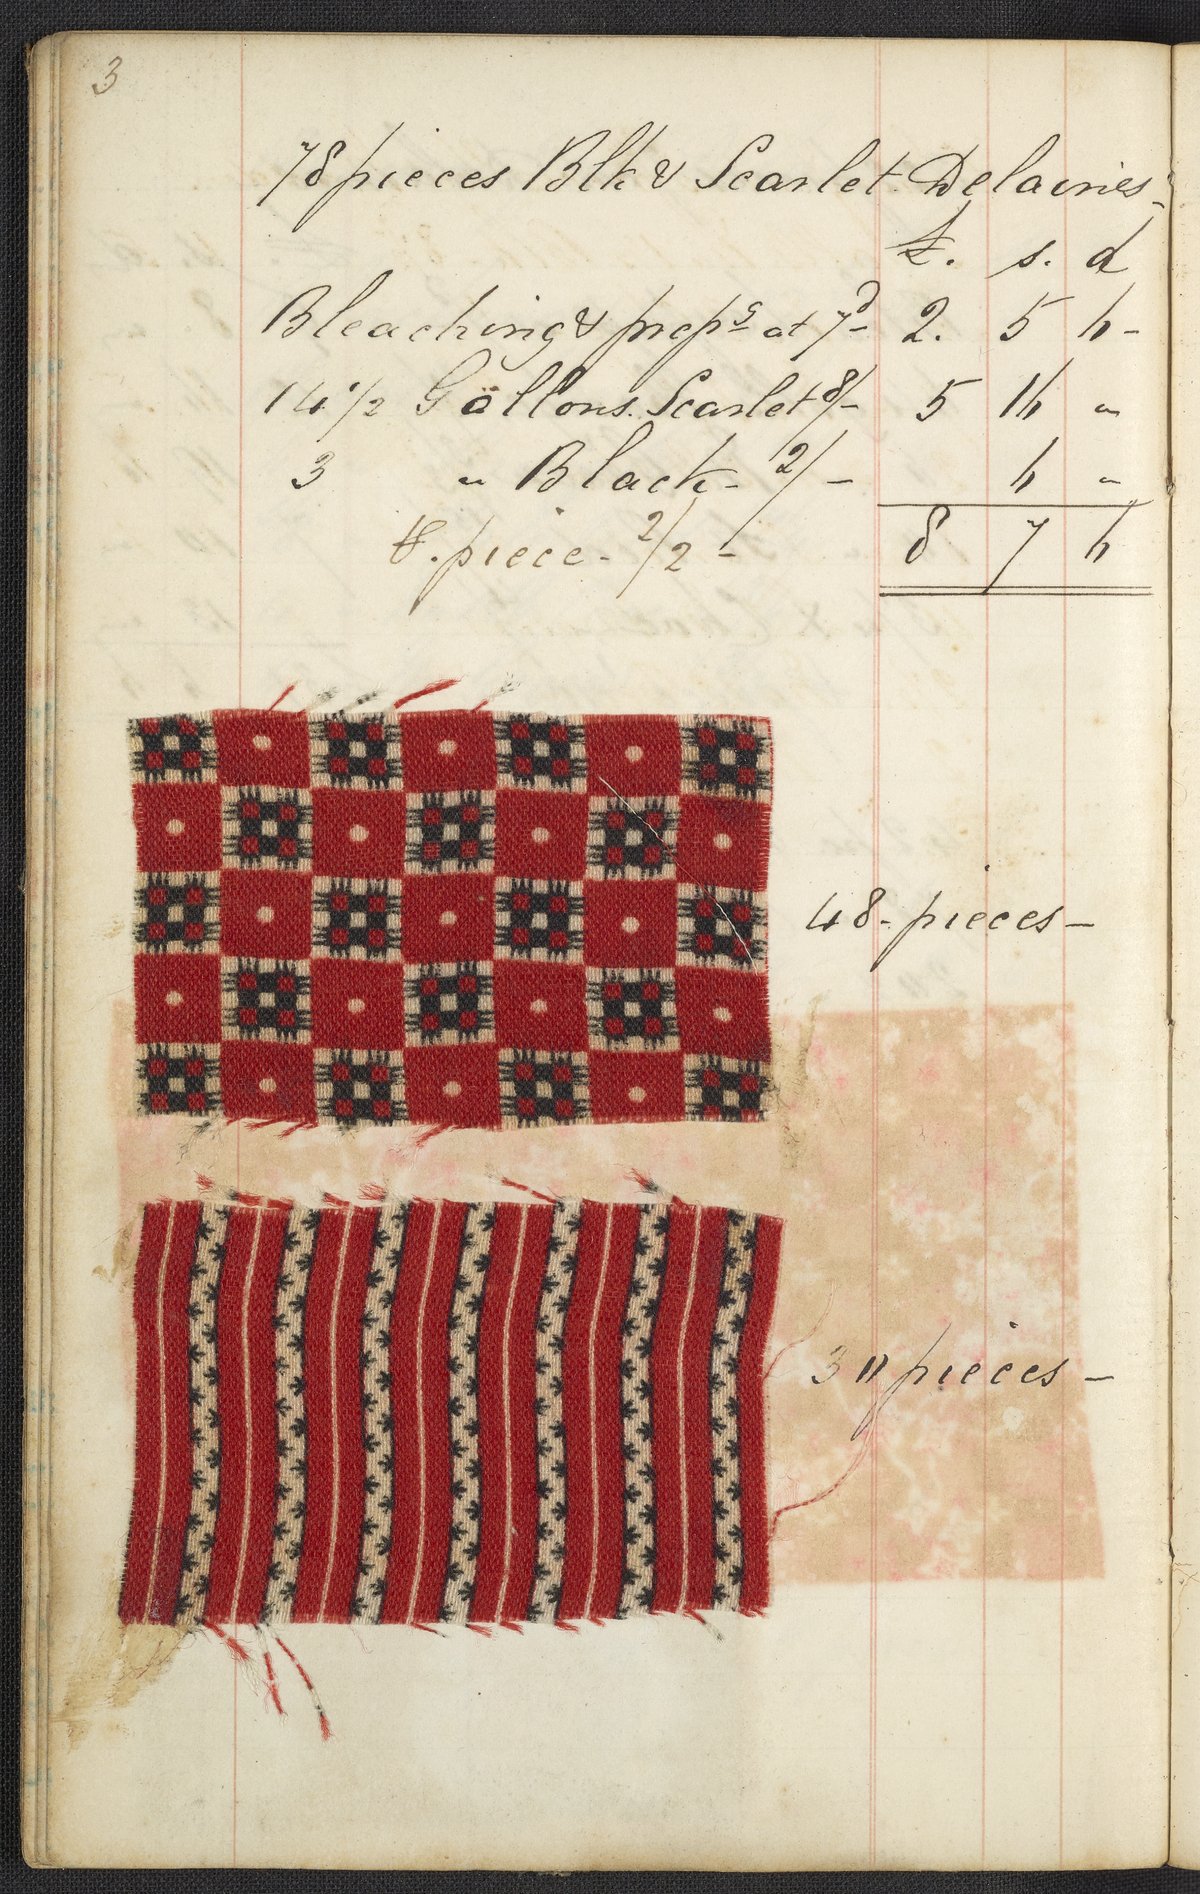 3
78 pieces Blk & Scarlet Delaines -
£. s. d
Bleaching & prepg at 7d - 2. 5 6 -
14 1/2 Gallons. Scarlet 8/- 5 16 "
3 " Black - 2/- 6 "
℔. piece - 2/2 - 8 7 6
48 - pieces -
30 pieces -